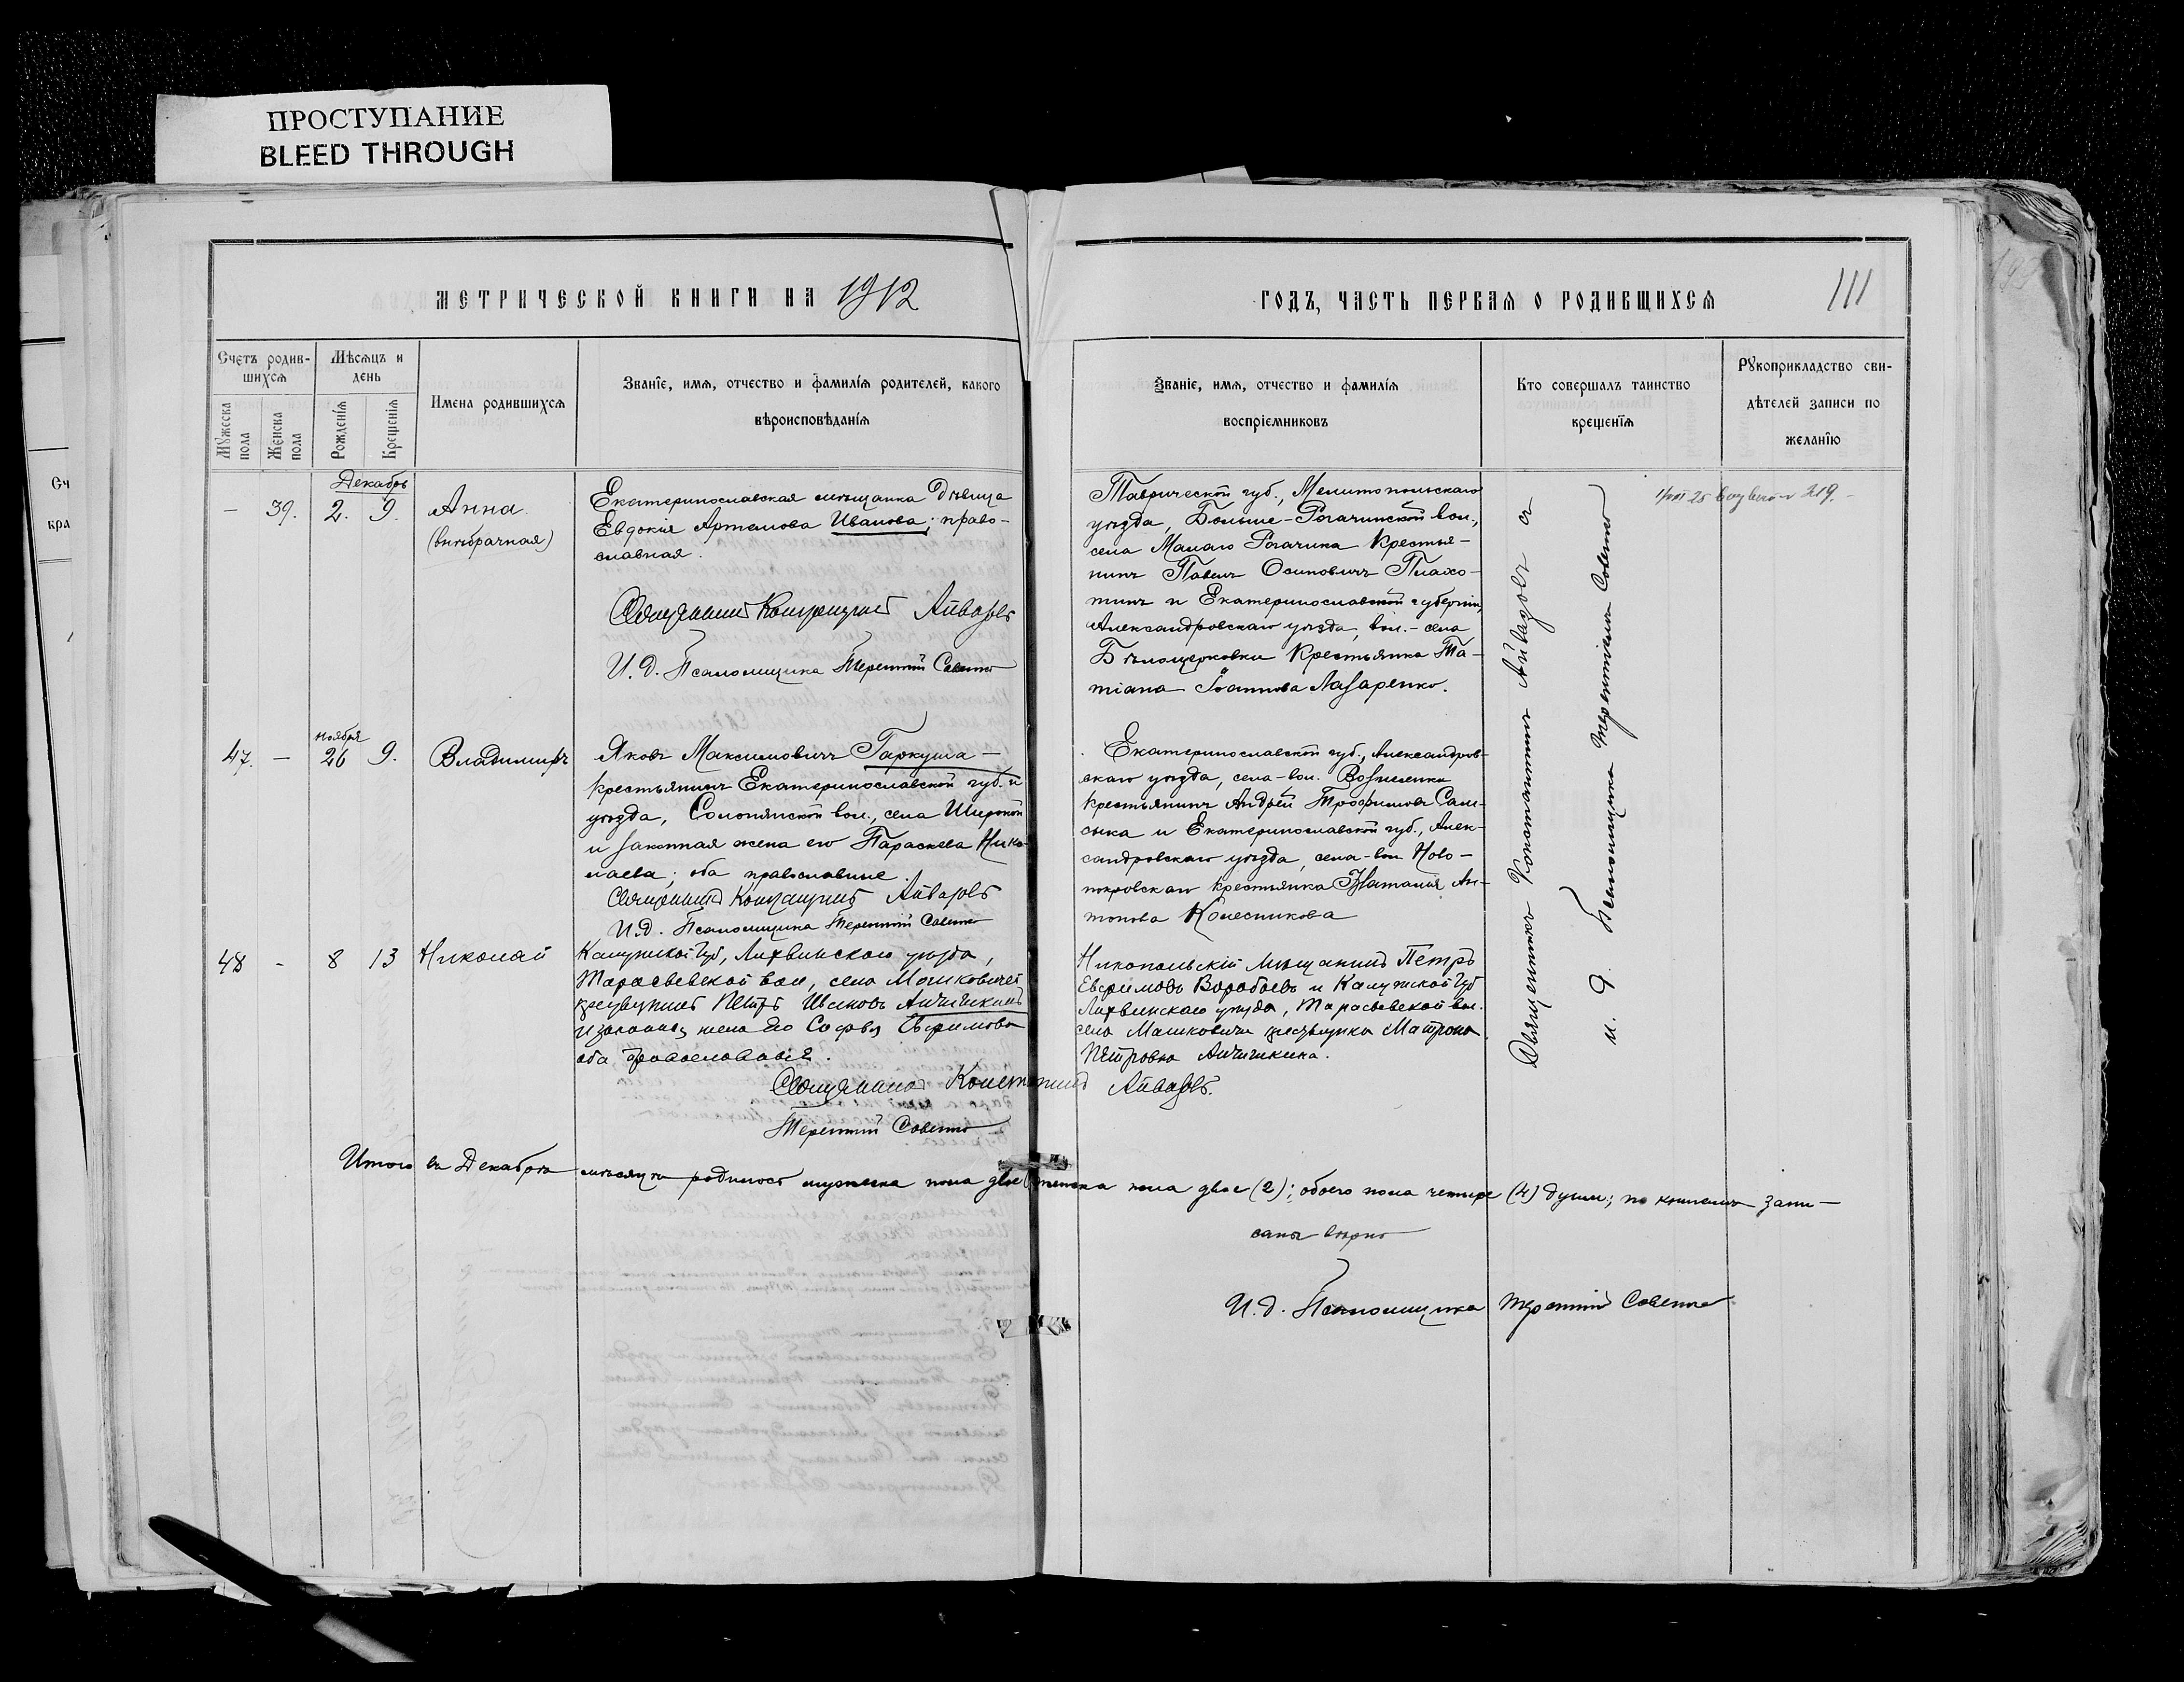 ПРОСТУПАНИЕ
BLEED THROUGH
МЕТРИЧЕСКОЙ КНИГИ НА 1912
Счетъ родив-
шихся
Мѣсяцъ и
день
Имена родившихся
Званіе, имя, отчество и фамилія родителей, какого
вѣроисповѣданія
Мужеска
пола
Женска
пола
Рожденія
Крещенія
Декабрь
– 39. 2. 9. Анна
(внѣбрачная)
Екатеринославская мѣщанка Дѣвица
Евдокія Артемова Иванова; право-
славная.
Священникъ Константинъ Айвазовъ
И. д. Псаломщика Терентій Савенко
Ноября
47. – 26 9. Владимиръ
Яковъ Максимовичъ Гаркуша –
крестьянинъ Екатеринославской губ. и
уѣзда, Солонянской вол., села Широкой
и законная жена его Параскева Нико-
лаева; оба православные.
Священникъ Константинъ Айвазовъ
И.д. Псаломщика Терентій Савенко
48 - 8 13 Николай
Калужской Губ, Лихвинскаго уѣзда,
вол, села
Петръ Ивановъ
и законная жена его Софья Ефимова
оба православные.
Священникъ Константинъ Айвазовъ.
Терентій Савенко
ГОДЪ, ЧАСТЬ ПЕРВАЯ О РОДИВШИХСЯ
111
Званіе, имя, отчество и фамилія
воспріемниковъ
Кто совершалъ таинство
крещенія
Рукоприкладство сви-
дѣтелей записи по
желанію
Таврической губ., Мелитопольскаго
уѣзда, Больше-Рогачинской вол.,
села Малаго Рогачика Крестья-
нинъ Павелъ Осиповичъ Плахо-
тинъ и Екатеринославской губерніи,
Александровскаго уѣзда, вол.-села
Бѣлоцерковки Крестьянка Та-
тіана Іоаннова Лазаренко.
Екатеринославской губ., Александров-
скаго уѣзда, села-вол. Вознесенки
крестьянинъ Андрей Трофимовъ
и Екатеринославской губ., Алек-
сандровскаго уѣзда, села-вол Ново-
покровскаго крестьянка Наталія Ан-
тонова Колесникова
Никопольскій мѣщанинъ Петръ
Ефимовъ Воробьевъ и Калужской Губ
Лихвинскаго уѣзда, вол.
села Матрона
Петровна
Священникъ Константинъ Айвазовъ съ
и. д. Псаломщика Терентіемъ Савенко
219.
Итого въ Декабрѣ мѣсяцѣ родилось мужеска пола двое женска пола двое (2); обоего пола четыре (4) души; по книгамъ запи-
саны вѣрно
И.д. Псаломщика Терентій Савенко